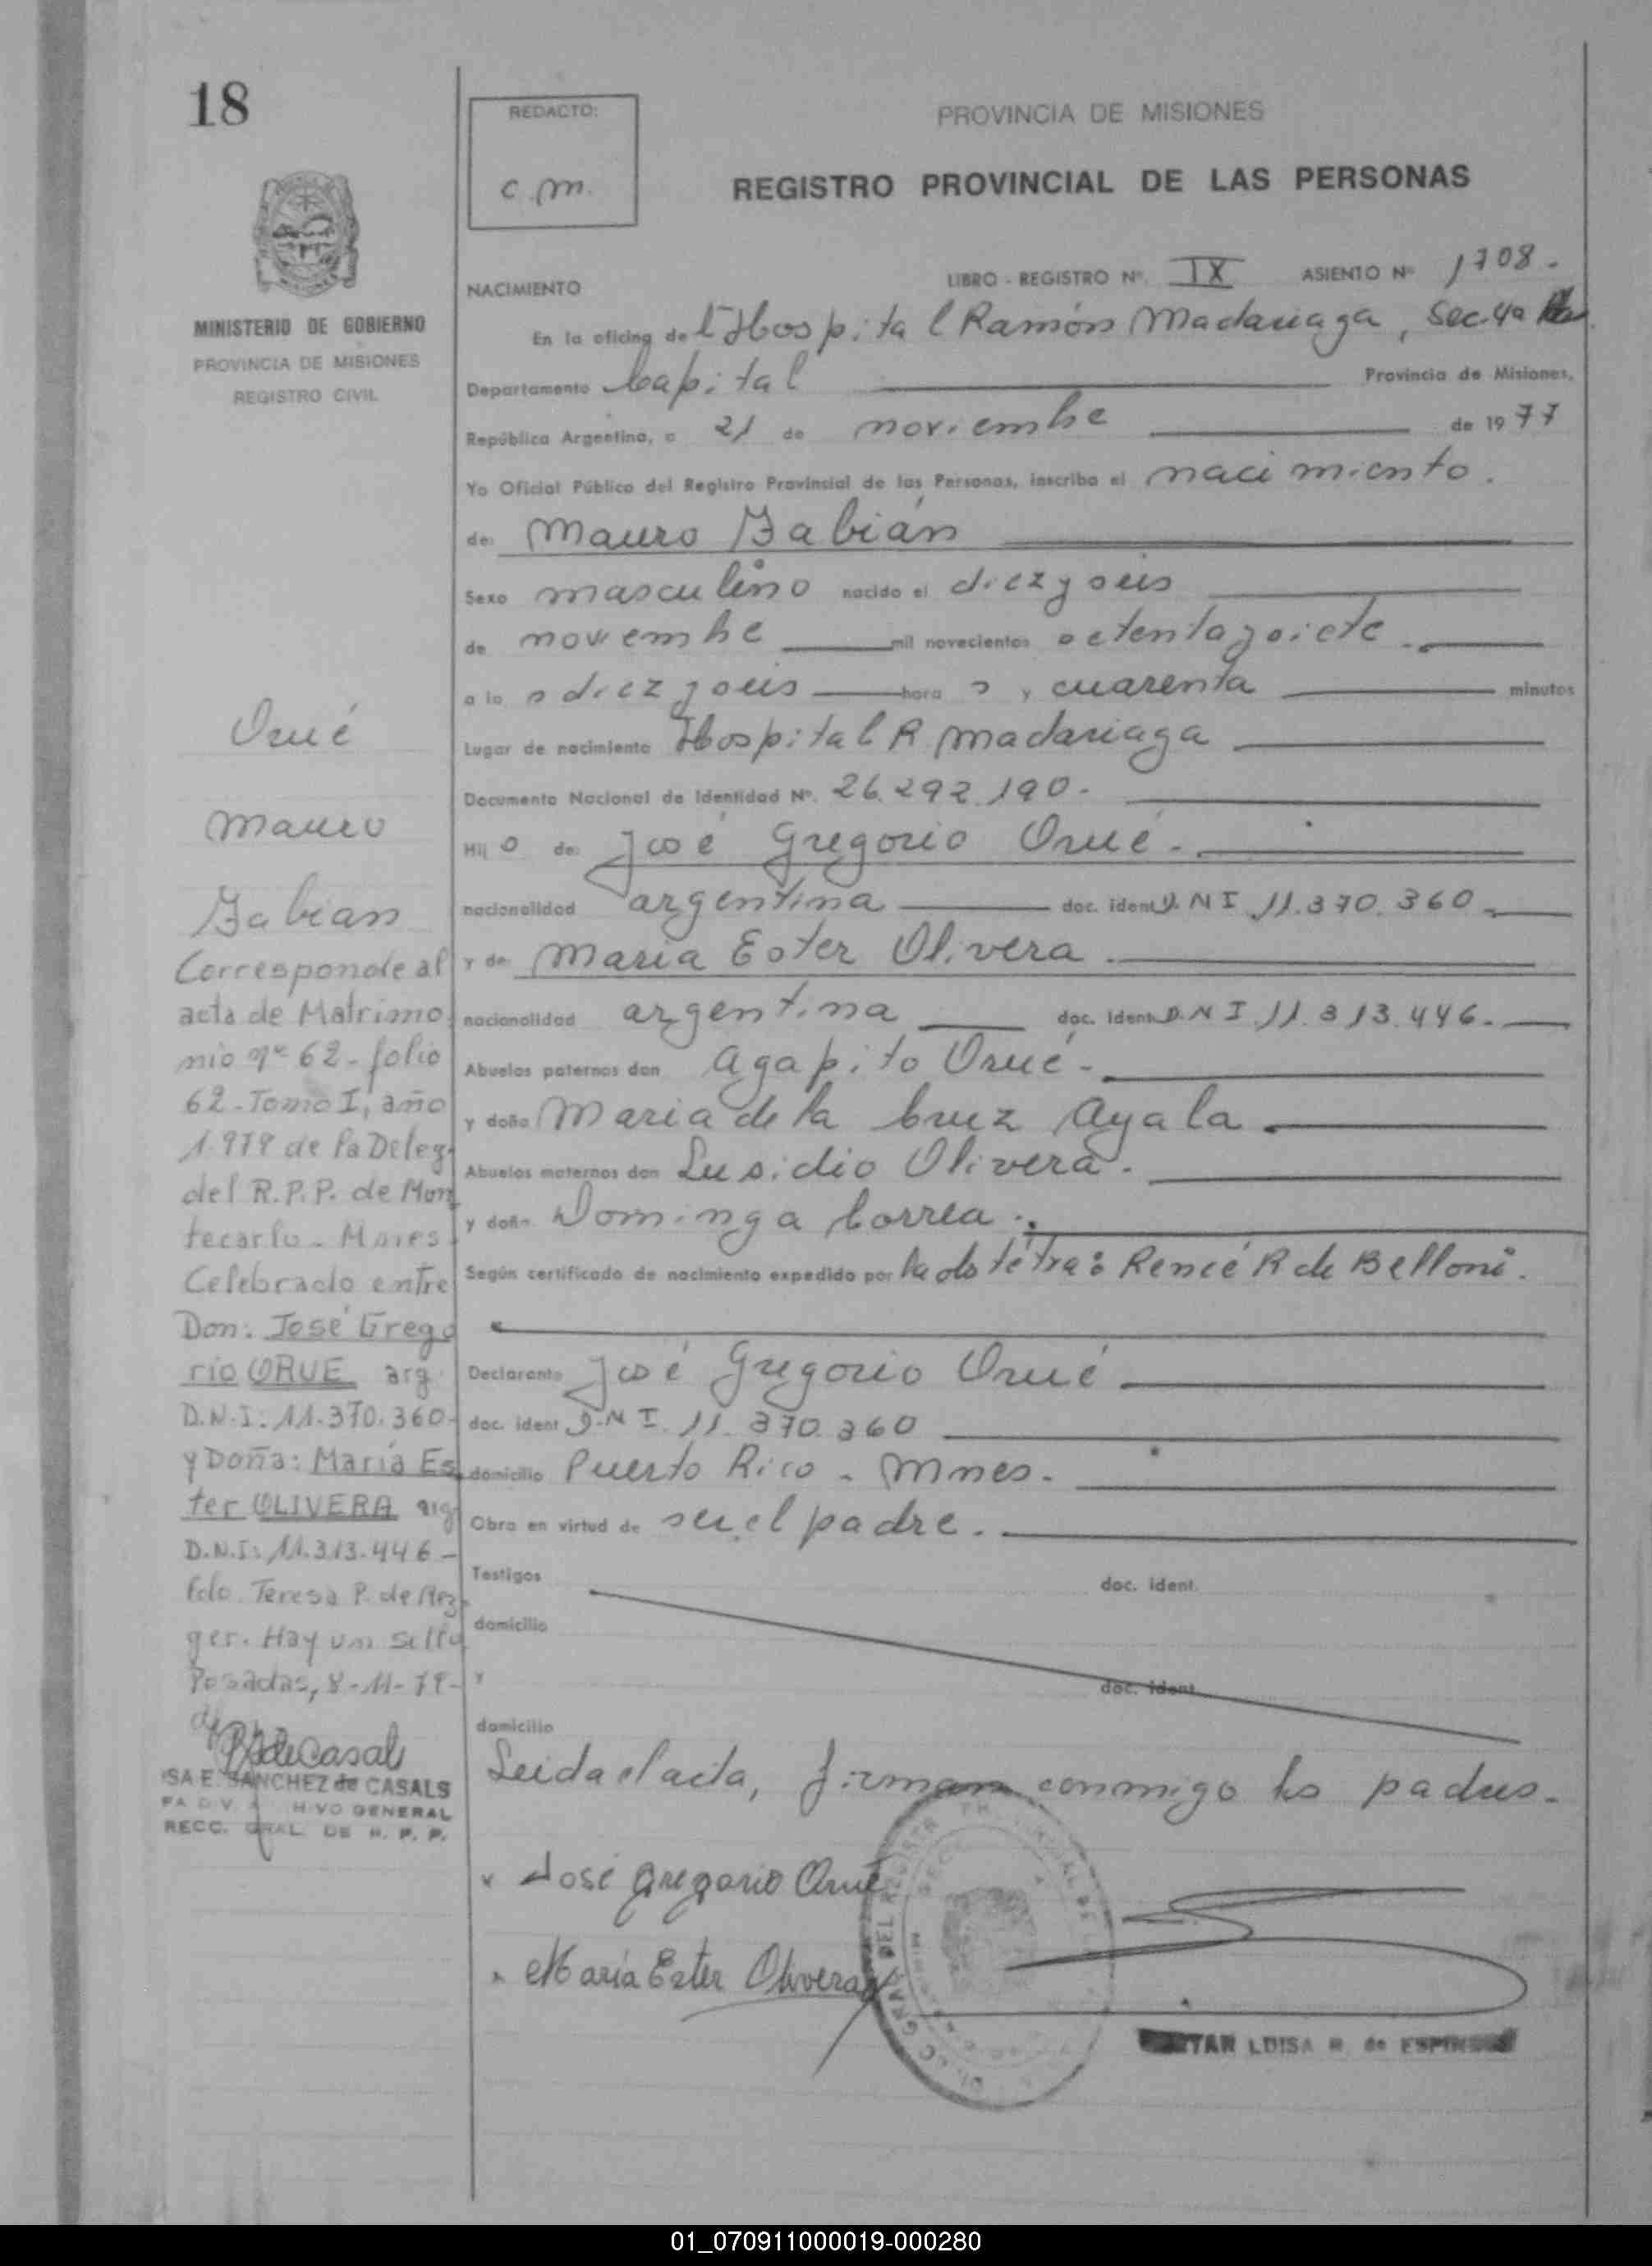 18
REDACTO:
c.m.
PROVINCIA DE MISIONES
REGISTRO PROVINCIAL DE LAS PERSONAS
MINISTERIO DE GOBIERNO
PROVINCIA DE MISIONES
REGISTRO CIVIL
NACIMIENTO LIBRO - REGISTRO Nº. IX ASIENTO Nº 1708.-
En la oficina del Hospital Ramón Madariaga, Sec. 4a
Departamento Capital Provincia de Misiones,
República Argentina, a 21 de noviembre de 1977
Yo Oficial Público del Registro Provincial de las Personas, inscribo el nacimiento.
de: Mauro Fabián
Sexo masculino nacido el diez y seis
de noviembre mil novecientos setenta y siete.
a la s diez y seis hora s y cuarenta minutos
Lugar de nacimiento Hospital R Madariaga
Documento Nacional de Identidad Nº. 26.292.190.-
Hij o de: José Gregorio Orué.-
nacionalidad argentina doc. ident D.N I. 11.370.360.-
y de María Ester Olivera.
nacionalidad argentina doc. ident D.N I. 11.313.446.-
Abuelos paternos don Agapito Orué.-
y doña María de la Cruz Ayala.
Abuelos maternos don Lusidio Olivera.
y doña Dominga Correa.
Según certificado de nacimiento expedido por la obstétra: Reneé R de Belloni.
Declarante José Gregorio Orué
doc. ident D-N I. 11.370.360
domicilio Puerto Rico - Mnes.
Obra en virtud de ser el padre.
Testigos doc. ident.
domicilio
y doc. ident.
domicilio
Leida el acta, firman conmigo los padres.-
x José Gregorio Orué
x María Ester Olivera
LUISA R. de
Orué
Mauro
Fabian
Corresponde al
acta de Matrimo
nio Nº 62 - folio
62 - Tomo I, año
1.979 de la Deleg.
del R.P.P. de Mon
tecarlo - Mnes
Celebrado entre
Don: José Grego
rio ORUE arg.
D.N.I: 11.370.360-
y Doña: María Es
ter OLIVERA arg
D.N.I: 11.313.446-
Fdo. Teresa P. de Mez
ger. Hay un sello
Posadas, 8-11-79-
SA E. SANCHEZ de CASALS
HIVO GENERAL
RECC. GRAL. DE R. P. P.
01_070911000019-000280